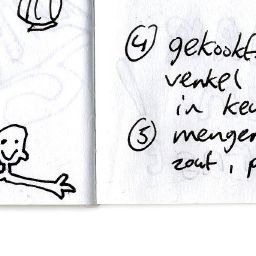 ④ gekookt
venkel
in keu
⑤ mengen
zout, p